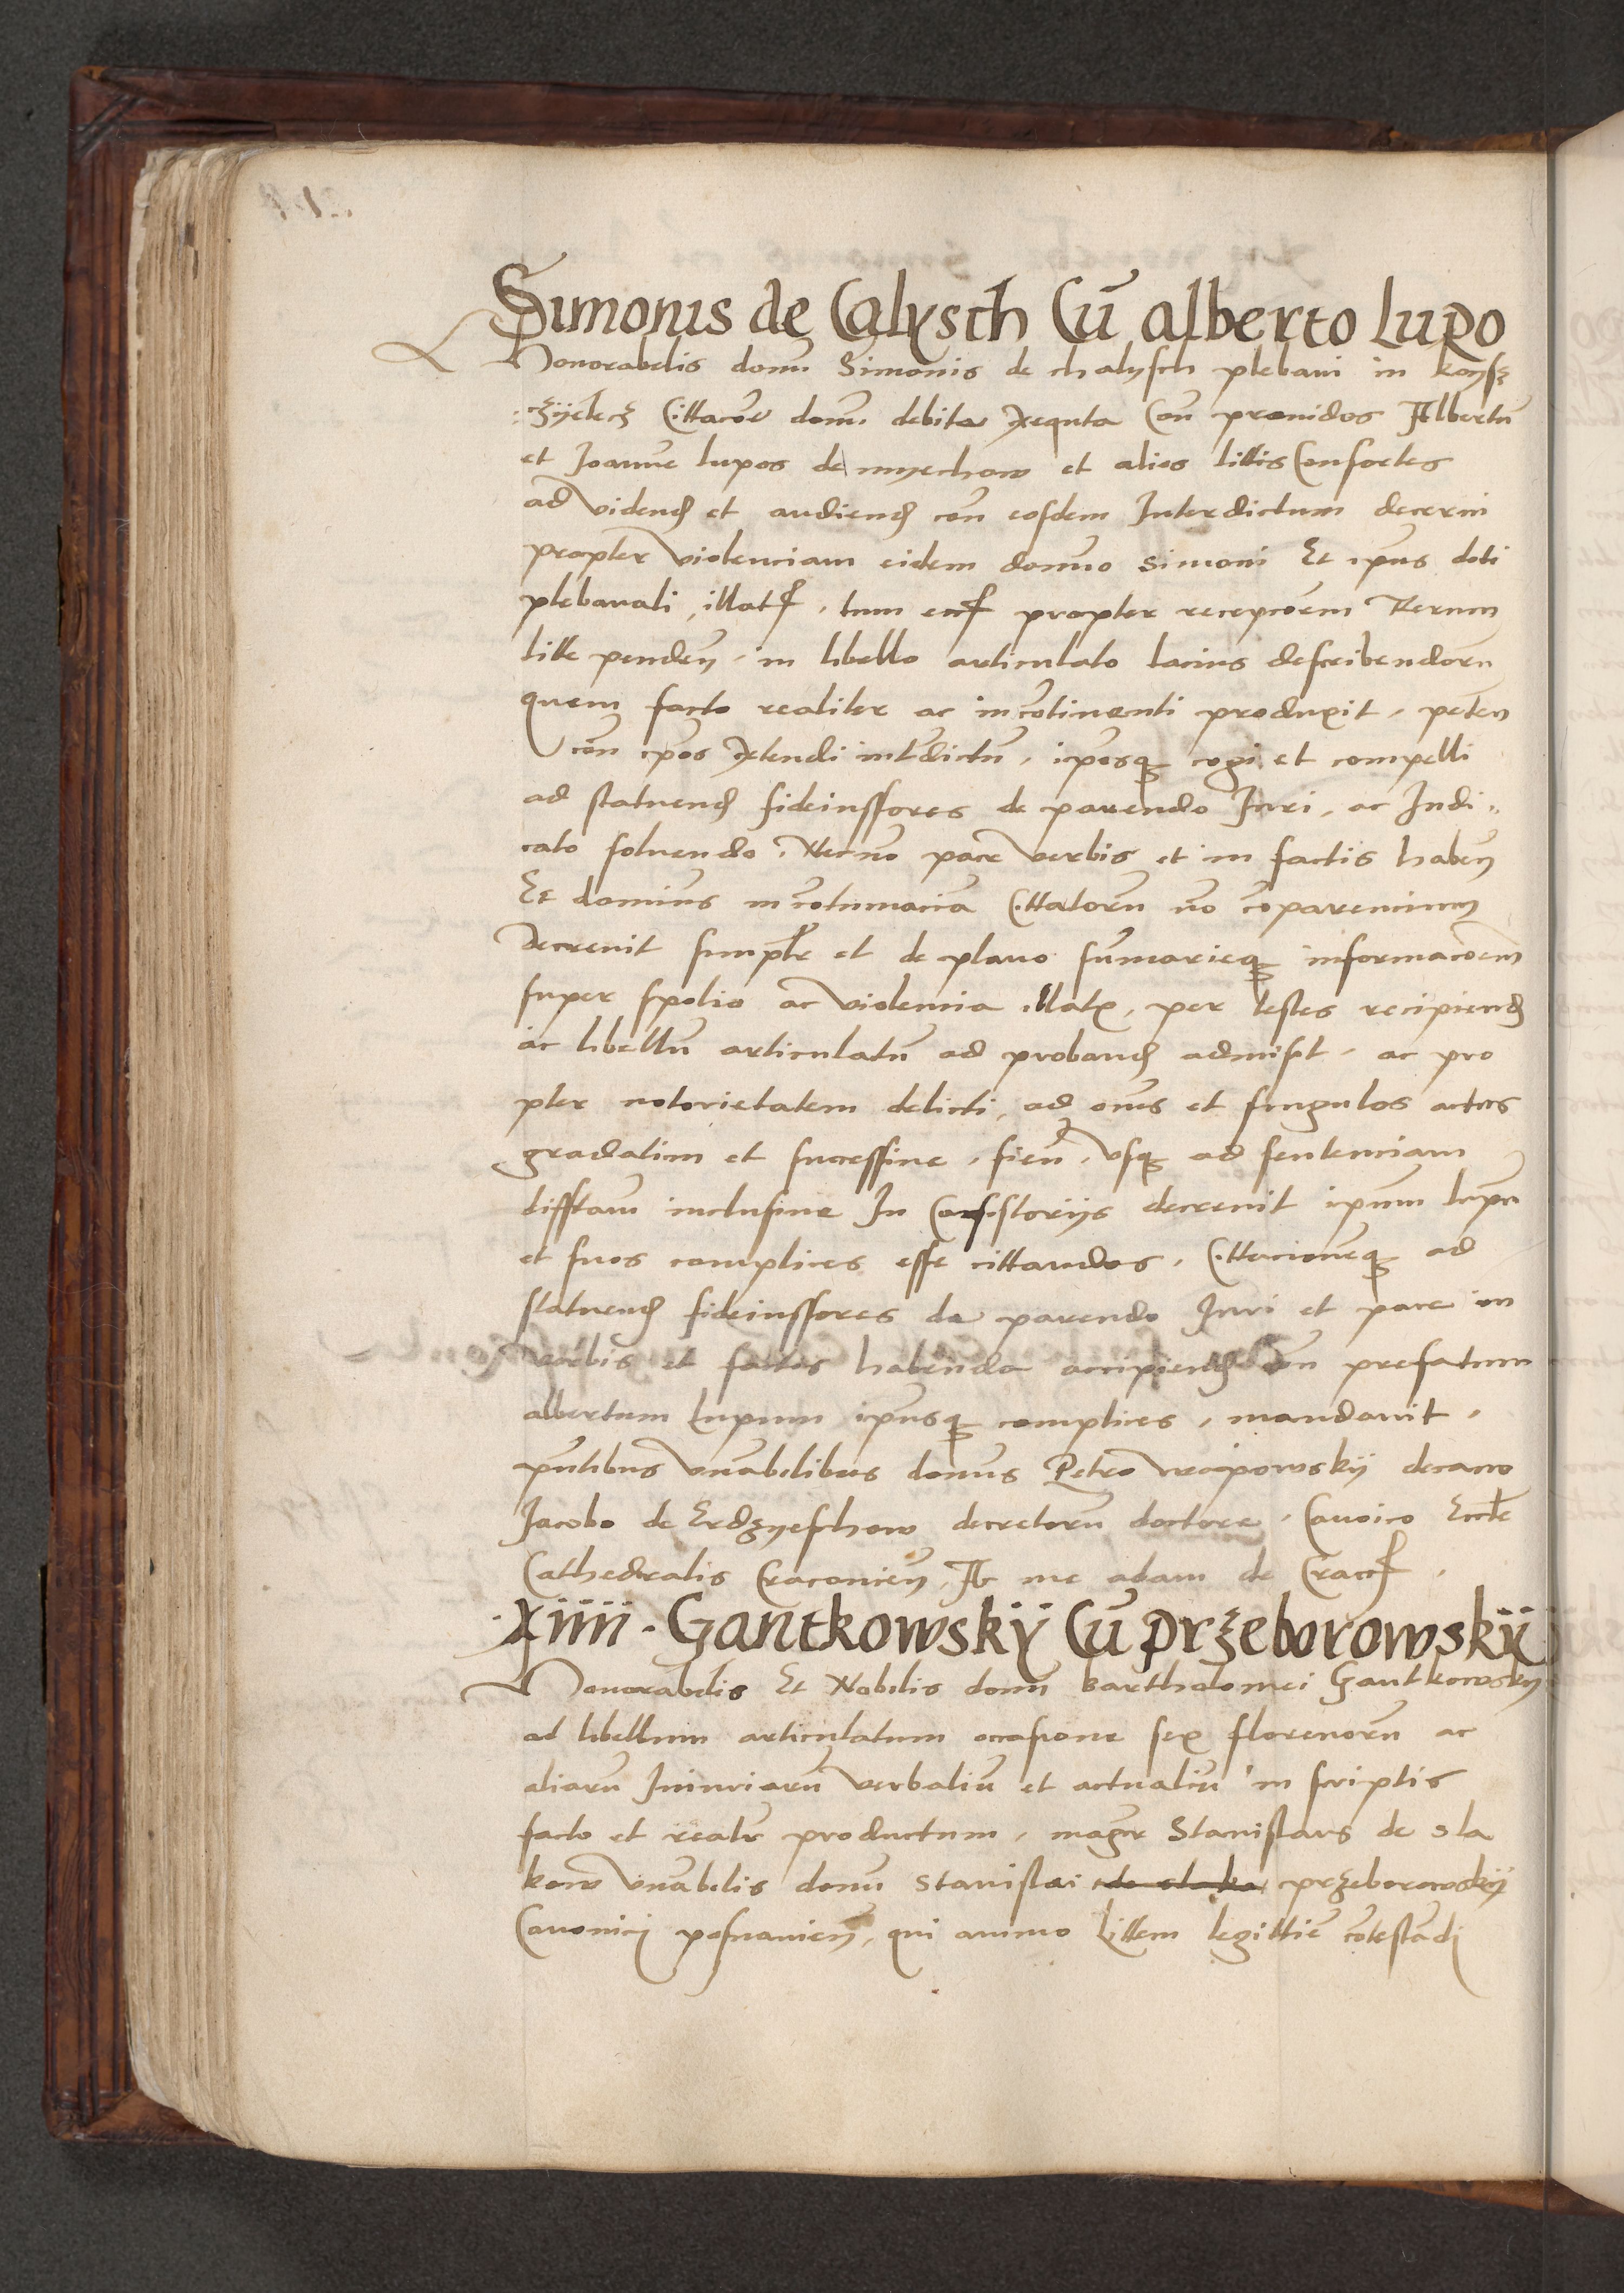 Simonis de Calysch Cū alberto Lupo
Honorabilis domi Simonis de chalysch plebani in koyſz
zyelecz Cittacōe domi debite Exequta Con prouidos Albertū
et Joanne lupos de myechow et alios littis Consortes
ad videnđ et audienđ con eosdem Interdictum decerni
propter violenciam eidem domno Simoni Et ipius doti
plebanali illatꝭ, tum propter recepcōem Rerum
litte pendeñ, in libello articulato lacius describendorū
quem facto realiter ac in cōtinenti produxit, peteñ
con ipos Extendi intdictū, iposqꝫ cogi et compelli
ad statuenđ fideiussores de parendo Juri, ac Judi,,
cato soluendo, Necno pace verbis et in factis habeñ
Et dominus in cōtumacia Cittatorū nō cōparencium
Decreuit simplr et de plano sūmarieqꝫ informacōem
super spolio ac violencia illatꝭ, per testes recipienđ
ac libellū articulatū ad probanđ admisit, ac pro
pter notorietatem delicti, ad omīs et singulos actus
gradatim et successiue, fieñ, vsqꝫ ad sentenciam
diffītam inclusiue In Consistoriis decreuit ipum lupū
et suos complices esse cittandos, Cittacioneqꝫ ad
statuenđ fideiussores de parendo Juri et pace in
verbis et factis habenda accipienđ con prefatum
albertum Lupum ipiusqꝫ complices, mandauit,
pñtibus vnābilibus domīs Petro wapowskÿ decano
Jacobo de Erdzyeschow decretorū doctore, Canoico Eccłe
Cathedralis Cracouieñ, Ac me adam de Craccꝭ,
·Xiiii· Gantkowskÿ Cū przeborowskÿ
Honorabilis Et Nobilis domī bartholomei Gantkowsky
ad libellum articulatum occasione sex florenorū ac
aliarū Iniuriarū verbaliū et actualiū in scriptis
facto et realr productum, magr Stanislaus de sla
kow vnābilis domī Stanislai de slako przeborowskÿ
Canonici posnanieñ, qui animo Littem legittīe cōtestādi